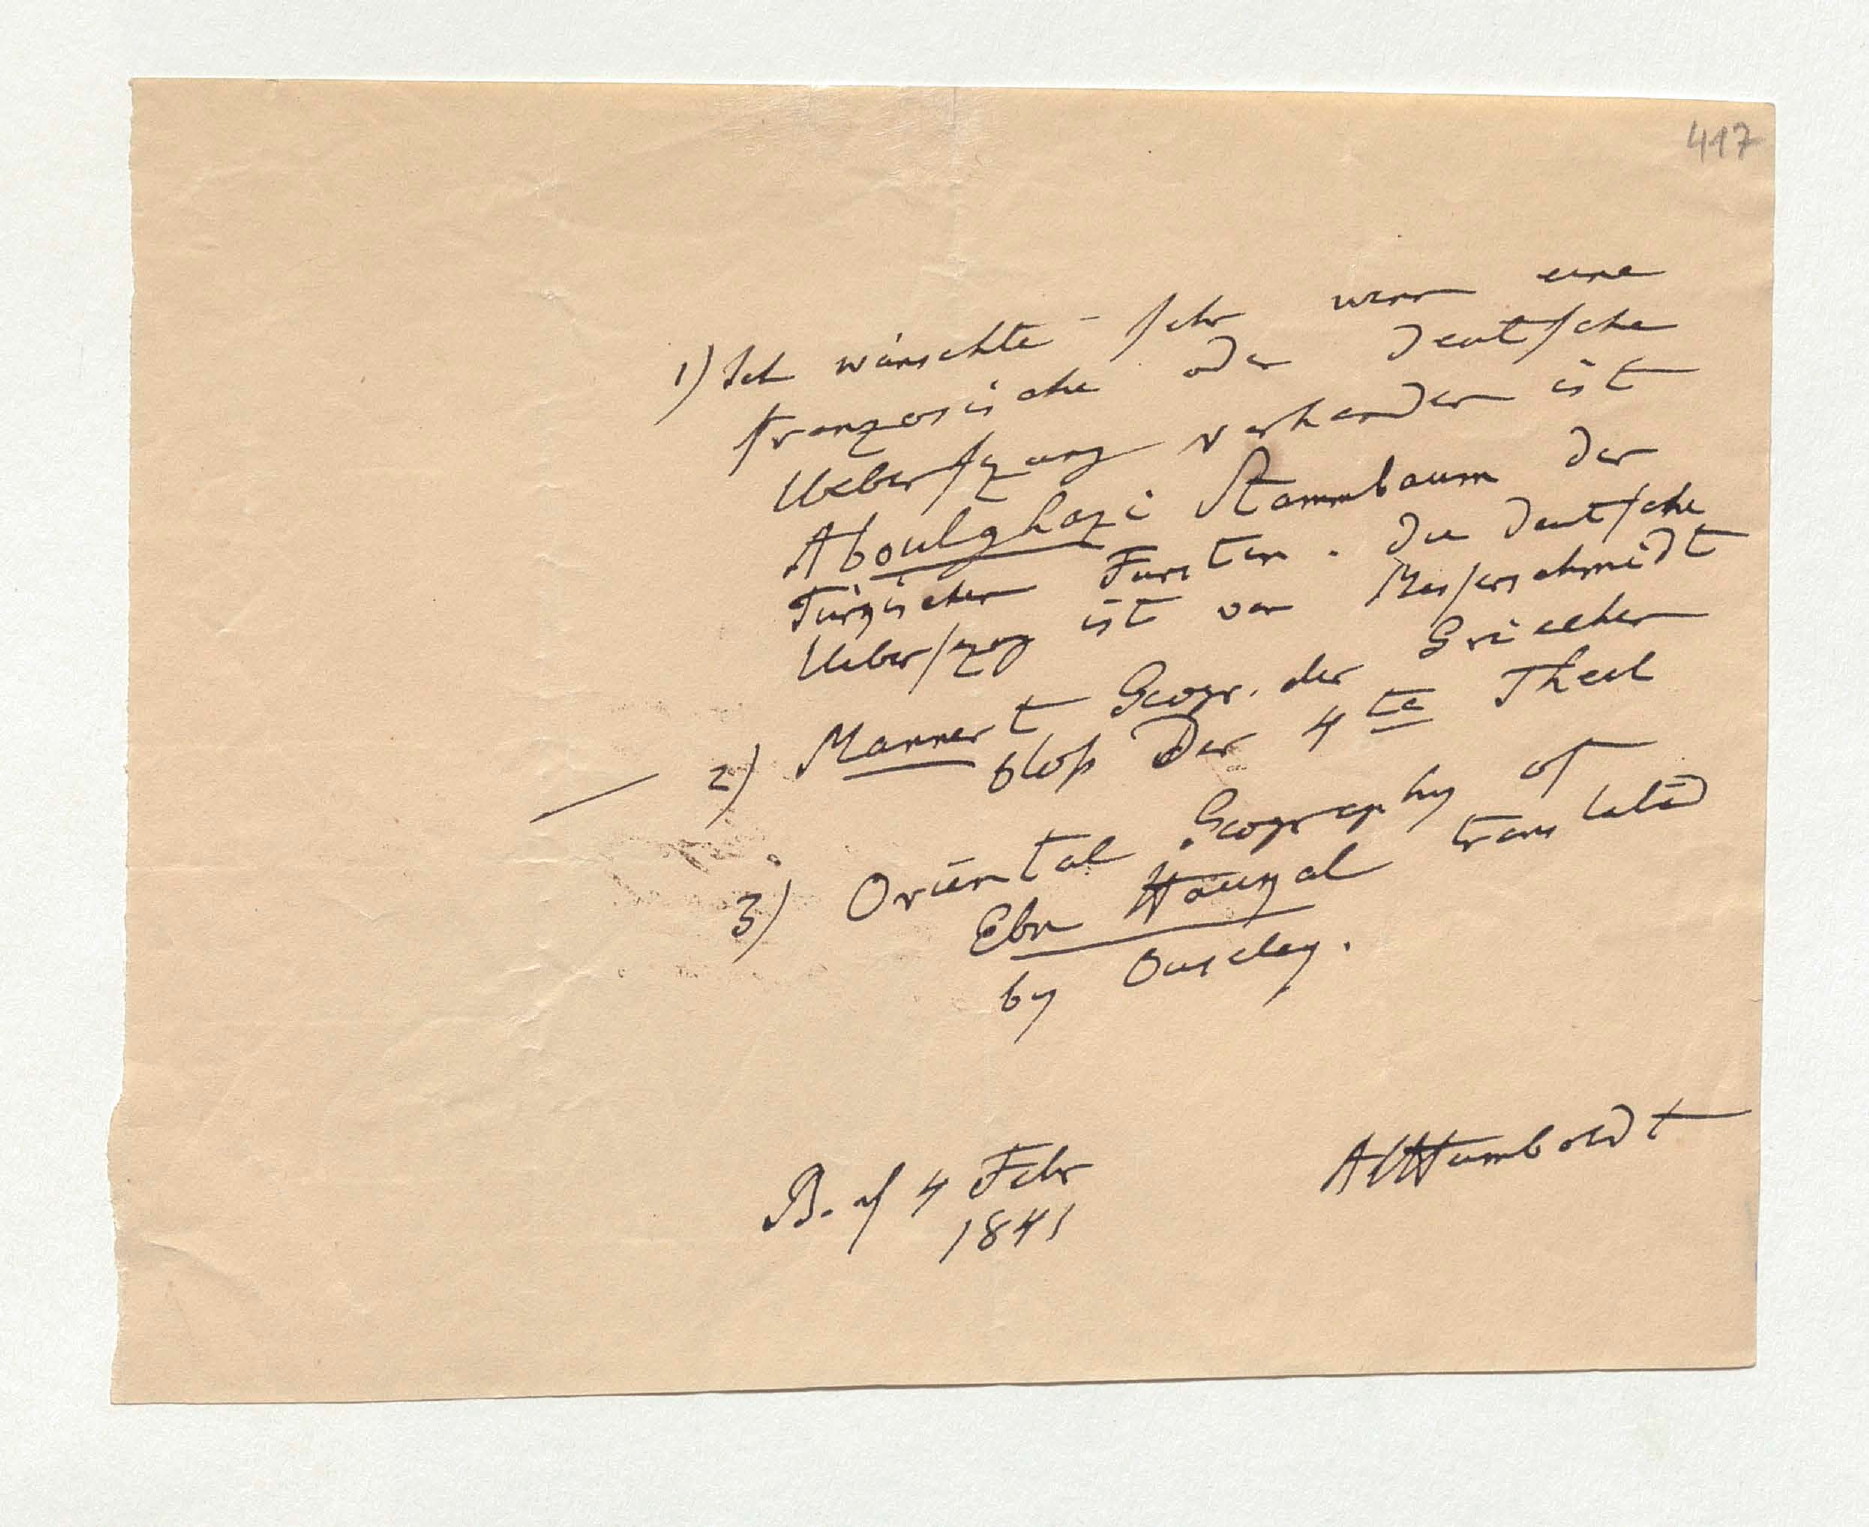 417
1) Ich wünschte sehr wenn eine
französische oder deutsche
Uebersezung vorhanden ist
Aboulghazi Stammbaum der
Türkischen Fürsten. Die deutsche
Uebersezg ist von Messerschmidt
2) Mannert Geogr. der Griechen
bloß der 4te Theil
3) Oriental Geography of
Ebn Hauqal translated
by Ouseley.
B. 4 Febr
1841
AlHumboldt